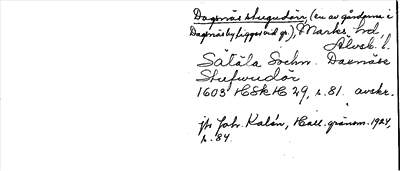 Dagsnäs stugudörr, (en av gårdarne i
Dagsnäs by ligger vid gr.), Marks hd
Älvsb. l.
Sätila Sochn. Daxnääs
Stufwudör
1603 HSkH 29, s. 81. avskr.
jfr Joh. Kalén, Hall. gränsm. 1924,
s. 84.